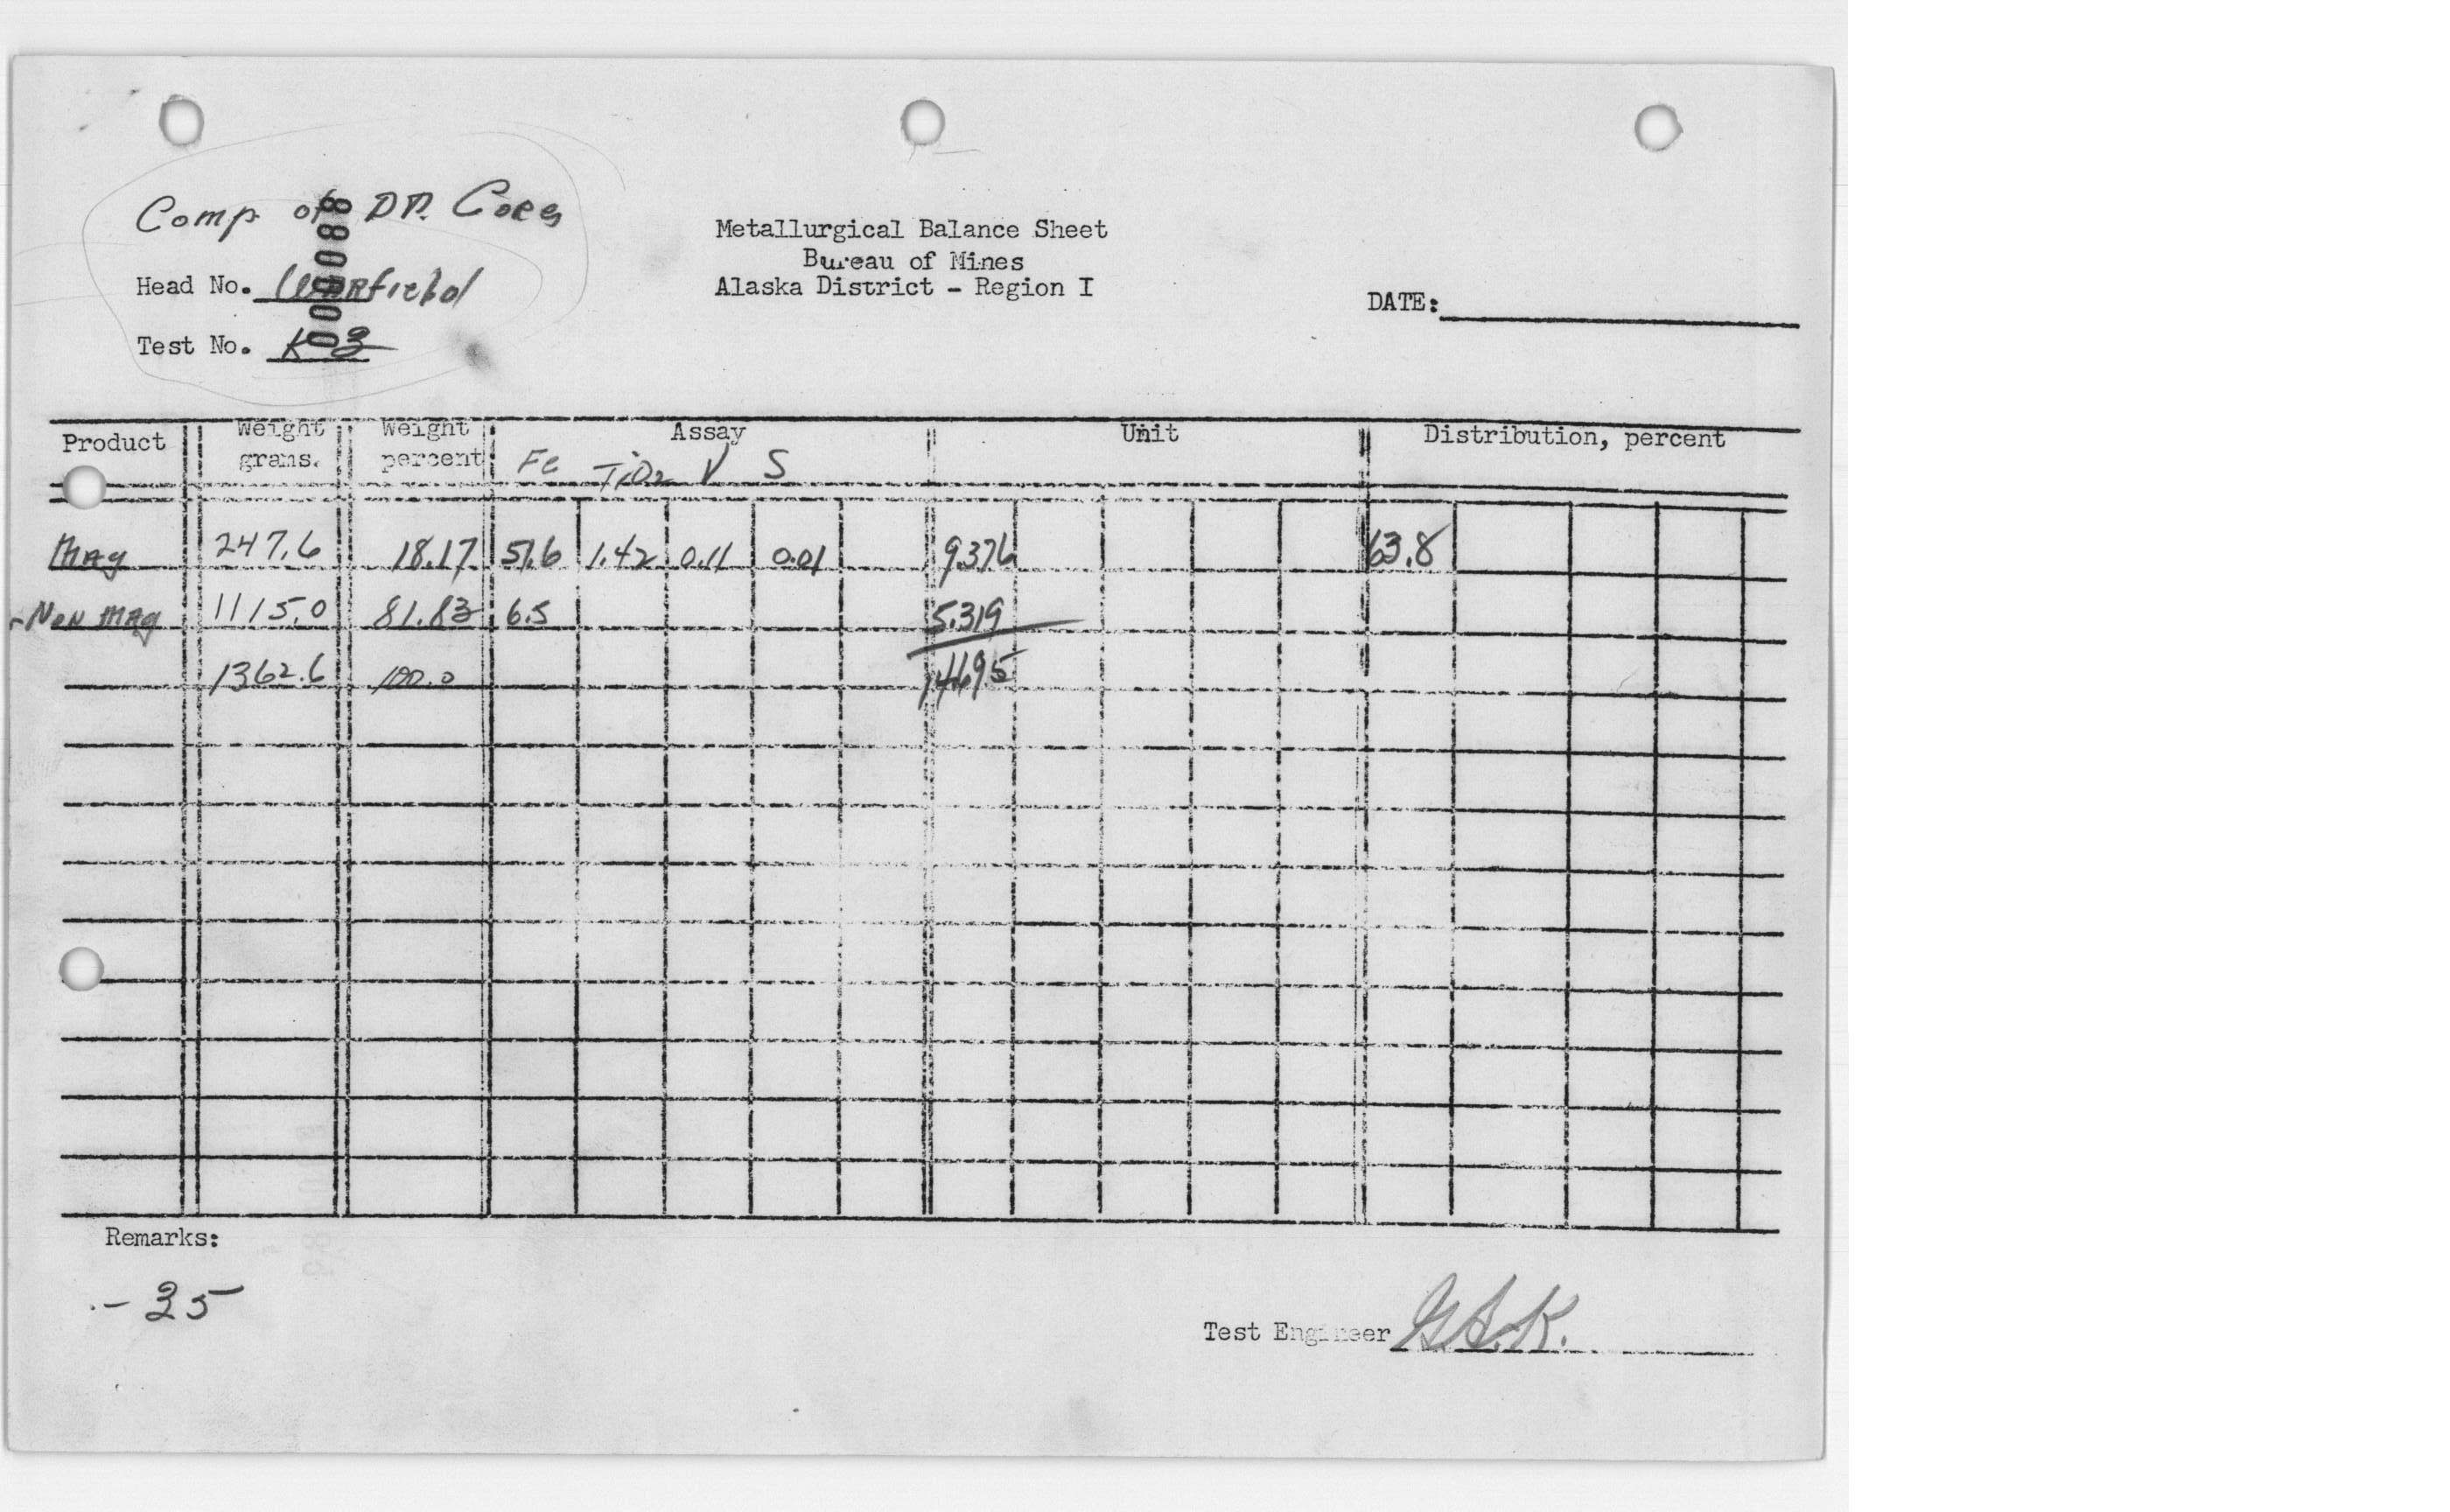 Comp of DD. Cores
0000088
Metallurgical Balance Sheet
Bureau of Mines
Alaska District - Region I
Head No. Warfield
DATE:
Test No. K-3
Product Weight grams. Weight percent Assay Unit Distribution, percent
Fe TiO2 V S
Mag 247.6 18.17 51.6 1.42 0.11 0.01 9.376 63.8
-Non Mag 1115.0 81.83 6.5 5.319
1362.6 100.0 14.695
Remarks:
- 35
Test Engineer